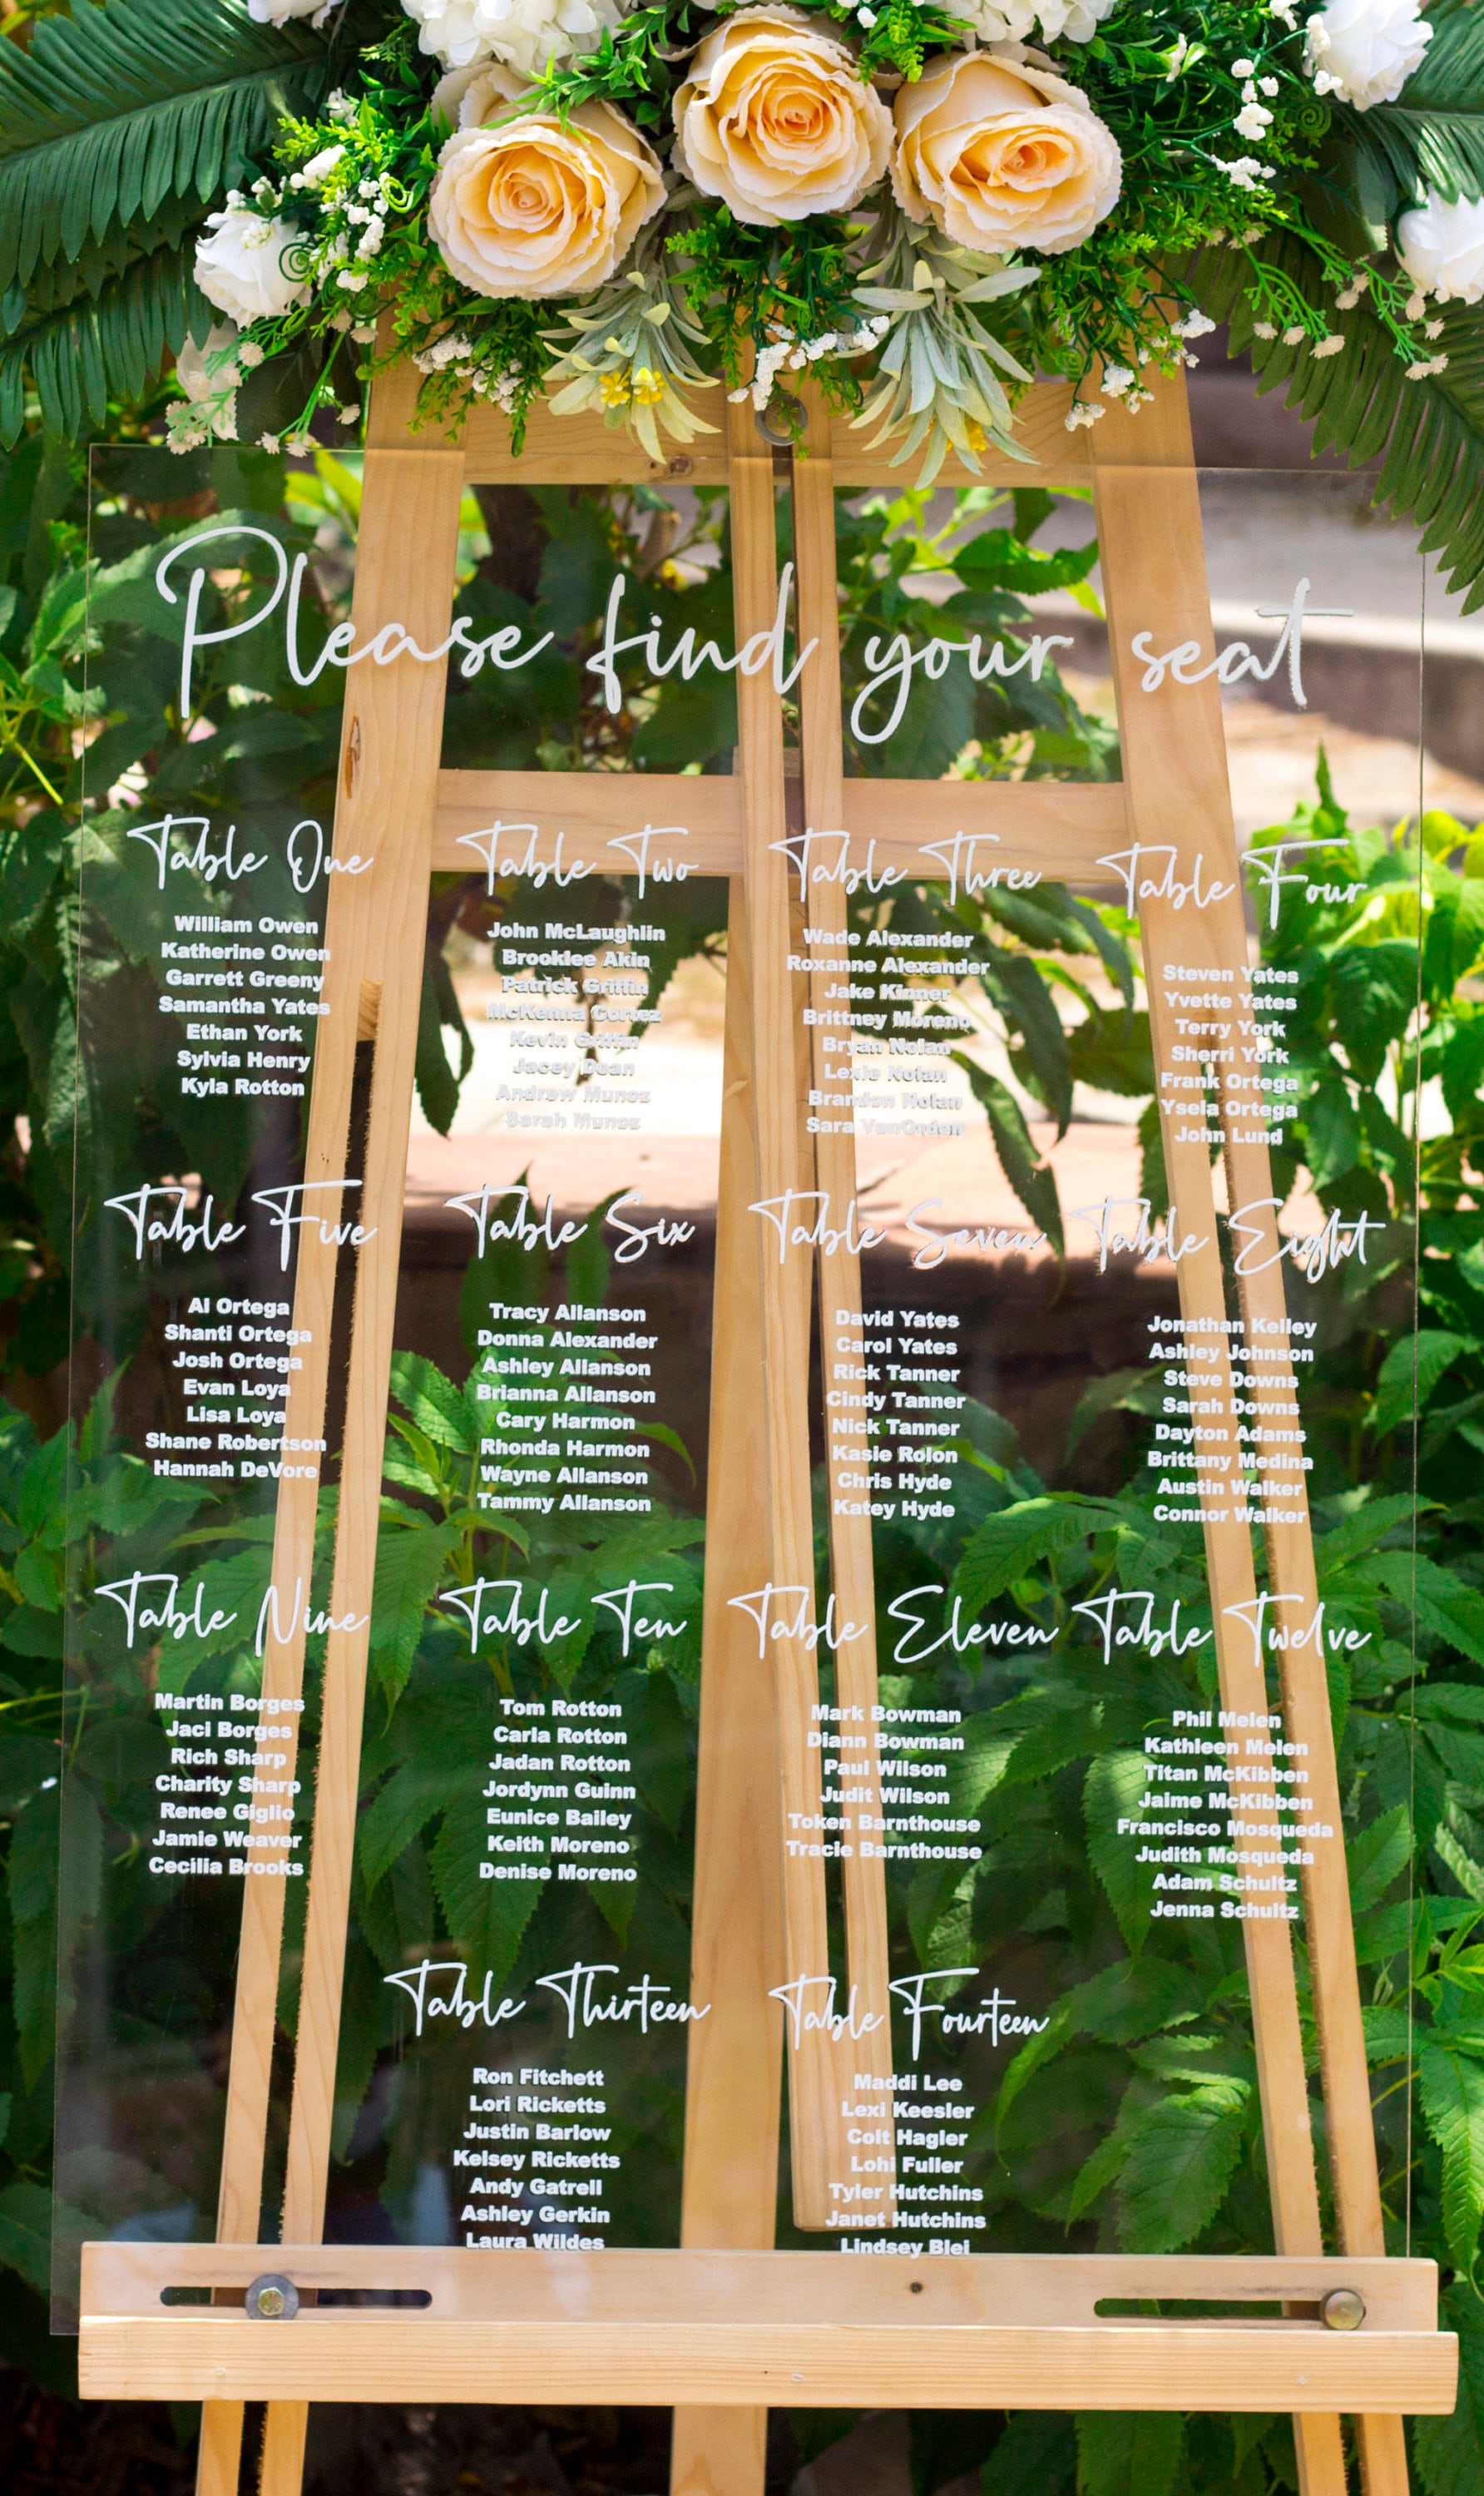 Please find your seat
Table One
William Owen
Katherine Owen
Garrett Greeny
Samantha Yates
Ethan York
Sylvia Henry
Kyla Rotton
Table Two
John McLaughlin
Brooklee Akin
Patrick Griffin
McKenna Cortez
Kevin Griffin
Jacey Dean
Andrew Munoz
Sarah Munoz
Table Three
Wade Alexander
Roxanne Alexander
Jake Kinner
Brittney Moreno
Bryan Nolan
Lexie Nolan
Brandon Nolan
Sara VanOrden
Table Four
Steven Yates
Yvette Yates
Terry York
Sherri York
Frank Ortega
Ysela Ortega
John Lund
Table Five
Al Ortega
Shanti Ortega
Josh Ortega
Evan Loya
Lisa Loya
Shane Robertson
Hannah DeVore
Table Six
Tracy Allanson
Donna Alexander
Ashley Allanson
Brianna Allanson
Cary Harmon
Rhonda Harmon
Wayne Allanson
Tammy Allanson
Table Seven
David Yates
Carol Yates
Rick Tanner
Cindy Tanner
Nick Tanner
Kasie Rolon
Chris Hyde
Katey Hyde
Table Eight
Jonathan Kelley
Ashley Johnson
Steve Downs
Sarah Downs
Dayton Adams
Brittany Medina
Austin Walker
Connor Walker
Table Nine
Martin Borges
Jaci Borges
Rich Sharp
Charity Sharp
Renee Giglio
Jamie Weaver
Cecilia Brooks
Table Ten
Tom Rotton
Carla Rotton
Jadan Rotton
Jordynn Guinn
Eunice Bailey
Keith Moreno
Denise Moreno
Table Eleven
Mark Bowman
Diann Bowman
Paul Wilson
Judit Wilson
Token Barnthouse
Tracie Barnthouse
Table Twelve
Phil Melen
Kathleen Melen
Titan McKibben
Jaime McKibben
Francisco Mosqueda
Judith Mosqueda
Adam Schultz
Jenna Schultz
Table Thirteen
Ron Fitchett
Lori Ricketts
Justin Barlow
Kelsey Ricketts
Andy Gatrell
Ashley Gerkin
Laura Wildes
Table Fourteen
Maddi Lee
Lexi Keesler
Colt Hagler
Lohi Fuller
Tyler Hutchins
Janet Hutchins
Lindsey Blei